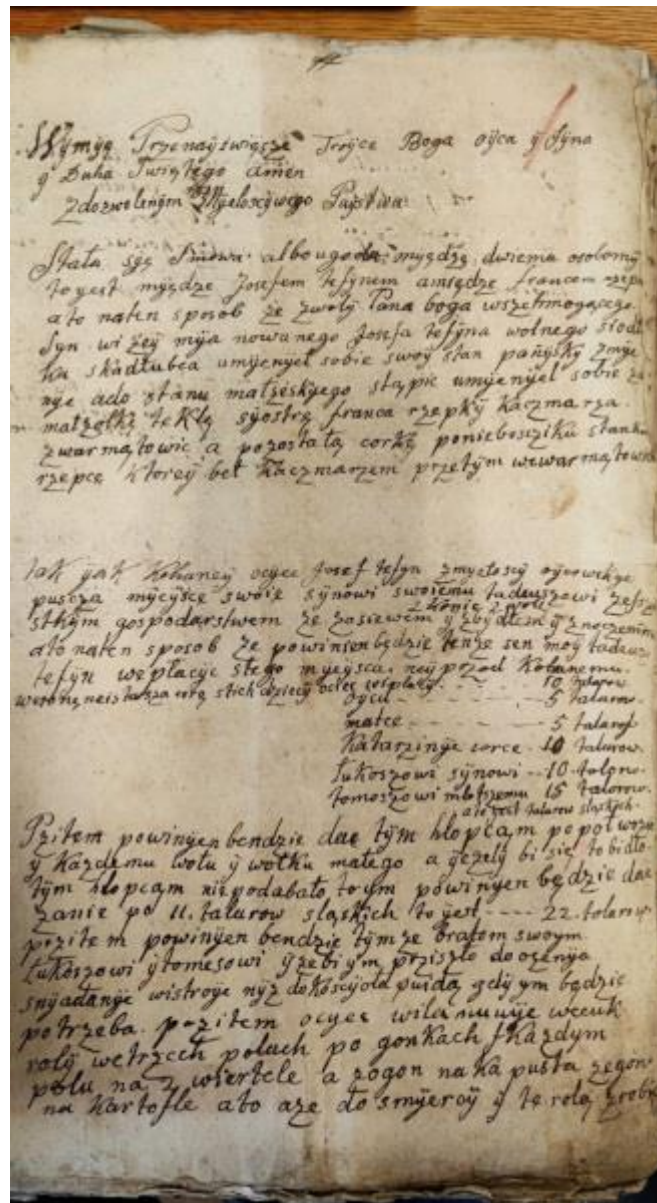 Wÿmÿę Przenaÿswięcze Troÿce Boga oÿca ÿ Sÿna
ÿ Duha Swiętego amen
Zdozwolenÿm Mÿeloscÿwego Pąÿstwa
Stała sÿę Smowa albo ugoda mÿądzę dwiema osobomÿ
to ÿest mÿądze Josefem tefÿnem amiędze francem rzepą
a to naten sposob że zwolÿ Pana boga wszetmogącego.
Sÿn wi żeÿ mÿa nowanego Josefa tefÿna wolnego siodł
ku skádłubca umÿenÿeł sobie swoÿ stan pańÿskÿ zmÿe
nÿe ado stanu małzeskÿego stąpic umÿenÿeł sobie za
małżąłkę teklę sÿostrę franca rzepkÿ kaczmarza.
zwarmątowic a pozostałą corkę ponieboscziku stanku
rzepcę ktoreÿ beł kaczmarzem przętÿm wewarmątowic
tak ÿak kohaneÿ ocÿec Josef tefÿn zmÿełoscÿ oÿcowskÿe
puscza mÿeÿscę swoie sÿnowi swoiemu tadeuszowi zewszÿ
stkÿm gospodarstwem ze zasiewem ÿ zbÿdłem ÿ znoczenim
z konie z wołe
ato naten sposob że powinien będzie tenże sen moÿ tadeusz
tefÿn wepłacÿc stego mÿeÿsca. neÿ przod kohanemu.
10 talarow
oÿcu - - - - - 5 talarow
matce - - - - - 5 talarof
Katarzinÿe corce - 10 talarow
Łukoszowi sÿnowi - - 10 talaro.
tomoszowi młotszemu 15 talorow.
ato ÿest talarow sląskich.
Pzitem powinÿen bendzie dac tÿm hłopcąm po poł wozu
ÿ każdemu wołu ÿ wołku małego a ÿeżelÿ bi się to bidło
tÿm hłopcąm niepodabało to ÿm powinÿen będzie dac
zanie po 11. talarow sląskich to ÿest - - - - 22. tolarow
pzitem powinÿen bendzie tÿm ze bratom swoÿm
Łukoszowi ÿ tomesowi ÿzebi ÿm prziszło do ozenÿa
snÿadanÿe wistroÿe nÿż dokosciÿoła puidą gdÿ ÿm będzie
potrzeba. pozitem ocÿec wilamuuÿe wecuk
rolÿ wetrzech polach po gonkach fkażdÿm
polu na 2 wiertele a zogon na ka pusta zegon
na kartofle ato aże do smÿercÿ ÿ tę rolą zrobic